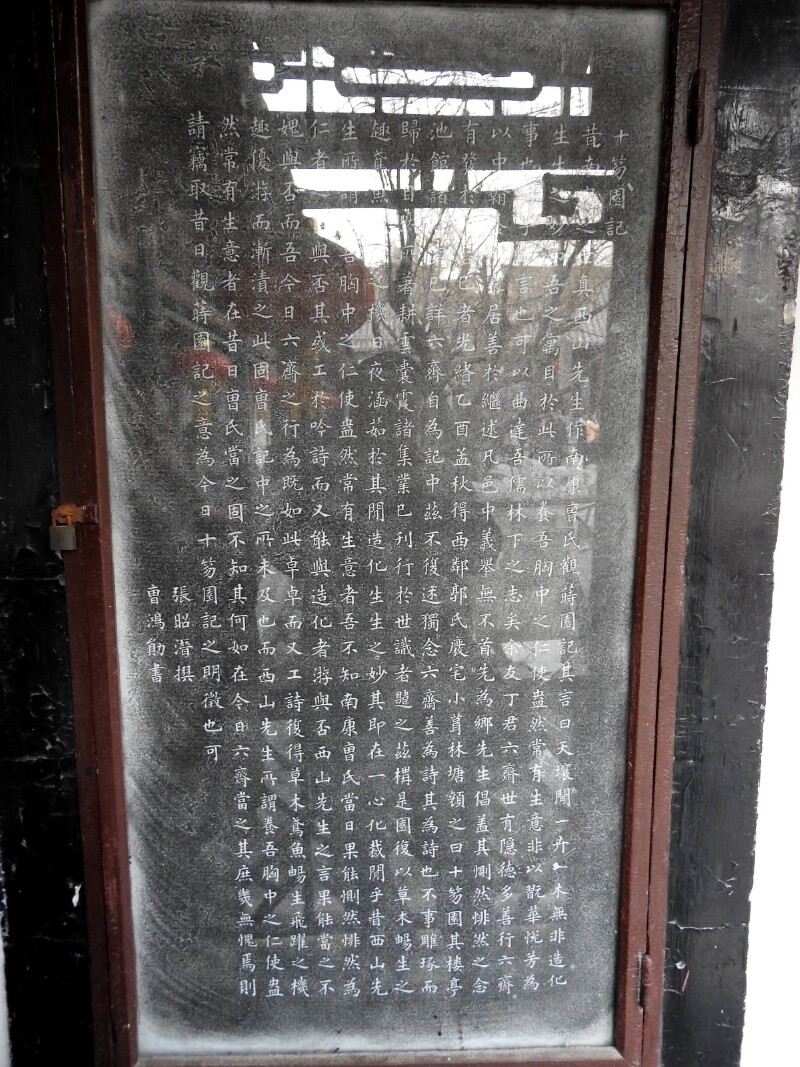 十笏園記
昔南 之 真西山先生作南康曹氏觀蒔園記其言曰天壤間一卉一木無非造化
生生之妙 吾之寓目於此所以養吾胸中之仁使盎然常有生意非以翫華悅芳為
事也 言也可以曲達吾儒林下之志矣余友丁君六齋世有隱德多善行六齋
以中翰 居善於繼述凡邑中義舉無不首先為鄉先生倡蓋其惻然悱然之念
有發於 已者光緒乙酉孟秋得西鄰郭氏廢宅小葺林塘額之曰十笏園其楼亭
池館諸 已詳六齋自為記中茲不復述獨念六齋善為詩其為詩也不事雕琢而
歸於自 所著耕雲囊霞諸集業已刊行於世識者韙之茲構是園復以草木暢生之
趣鳶魚 之機日夜涵茹於其間造化生生之妙其即在一心化裁間乎昔西山先
生所謂 吾胸中之仁使盎然常有生意者吾不知南康曹氏當日果能惻然悱然為
仁者 與否其或工於吟詩而又能與造化者游與否西山先生之言果能當之不
媿與否而吾今日六齋之行為既如此卓卓而又工詩復得草木鳶魚暢生飛躍之機
趣優游而漸漬之此固曹氏記中之所未及也而西山先生所謂養吾胸中之仁使盎
然常有生意者在昔日曹氏當之固不知其何如在今日六齋當之其庶幾無愧焉則
請竊取昔日觀蒔園記之意為今日十笏園記之明徵也可
張昭潛撰
曹鴻勛書